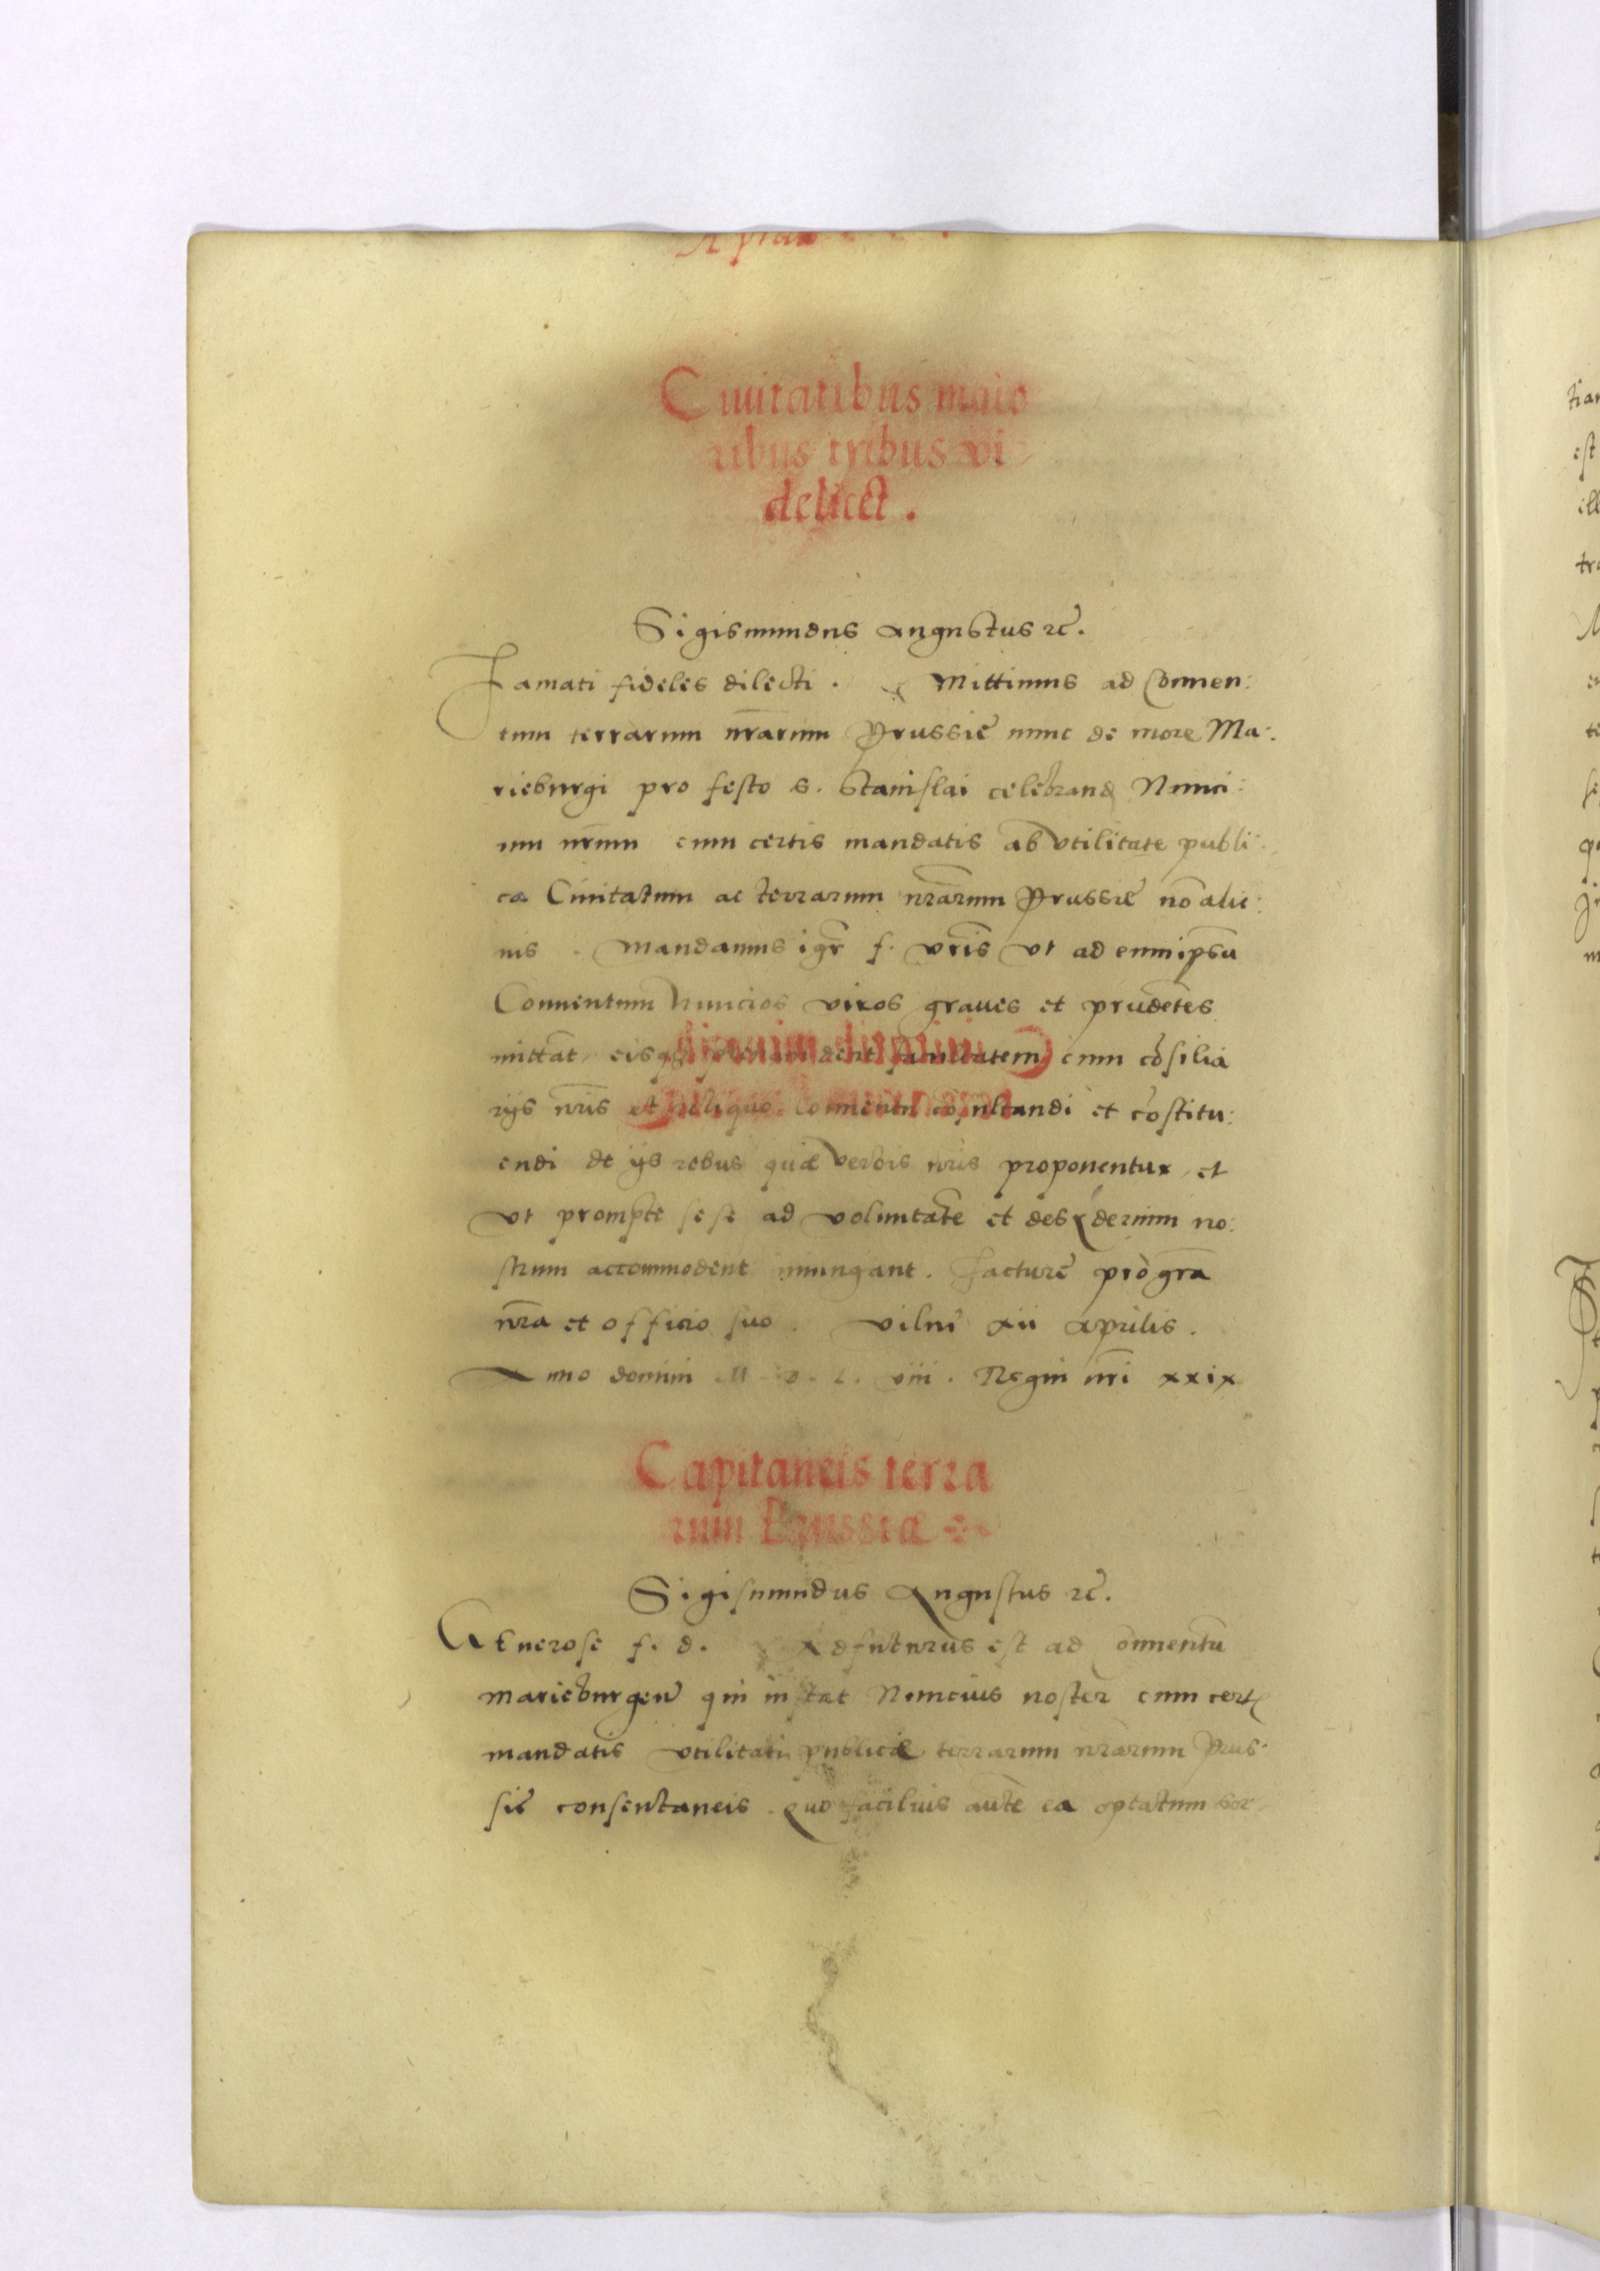 Ciuitatibus maio
ribus tribus vi
delicet.
Sigismundus Augustus rc̄.
Famati fideles dilecti. Mittimus ad Conuen:
tum terrarum nr̄arum Prussie nunc de more Ma:
rieburgi pro festo S. Stanislai celebrand Nunci:
um nr̄um cum certis mandatis ab vtilitate publi:
ca Ciuitatum ac terrarum nr̄arum Prussiē nō alie:
nis. Mandamus igr̄ f. vr̄is vt ad eum ip̄su
Conuentum Nuncios viros graues et prudētes
mittāt eisq dent facultatem cum cōsilia
rijs nr̄is et reliquo Conuentu consultandi et cōstitu:
endi de ijs rebus quæ verbis nr̄is proponentur et
vt prompte sese ad voluntatē et desyderium no:
strum accommodent iniungant. Facturē pro gr̄a
nr̄a et officio suo. Vilnē xii Aprilis.
Anno domini M. D. L. viii. Regni nr̄i xxix
Capitaneis terra
rum Prussiæ
Sigismundus Augustus rc̄.
Generose f. d. Adfuturus est ad Conuentū
marieburgen̄ qui instat Nuncius noster cum cert
mandatis vtilitati publicæ terrarum nr̄arum Prus:
siē consentaneis. Quo facilius autē ea optatum sor